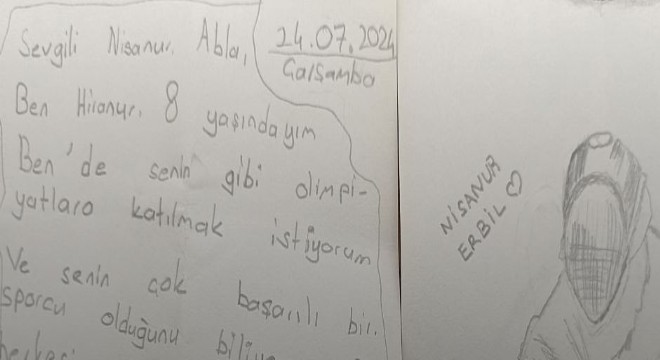 Sevgili Nisanur Abla,
24.07.2024
Çarşamba
Ben Hiranur. 8 yaşındayım
Ben'de senin gibi olimpi-
yatlara katılmak istiyorum
Ve senin çok başarılı bir
sporcu olduğunu
NİSANUR
ERBİL